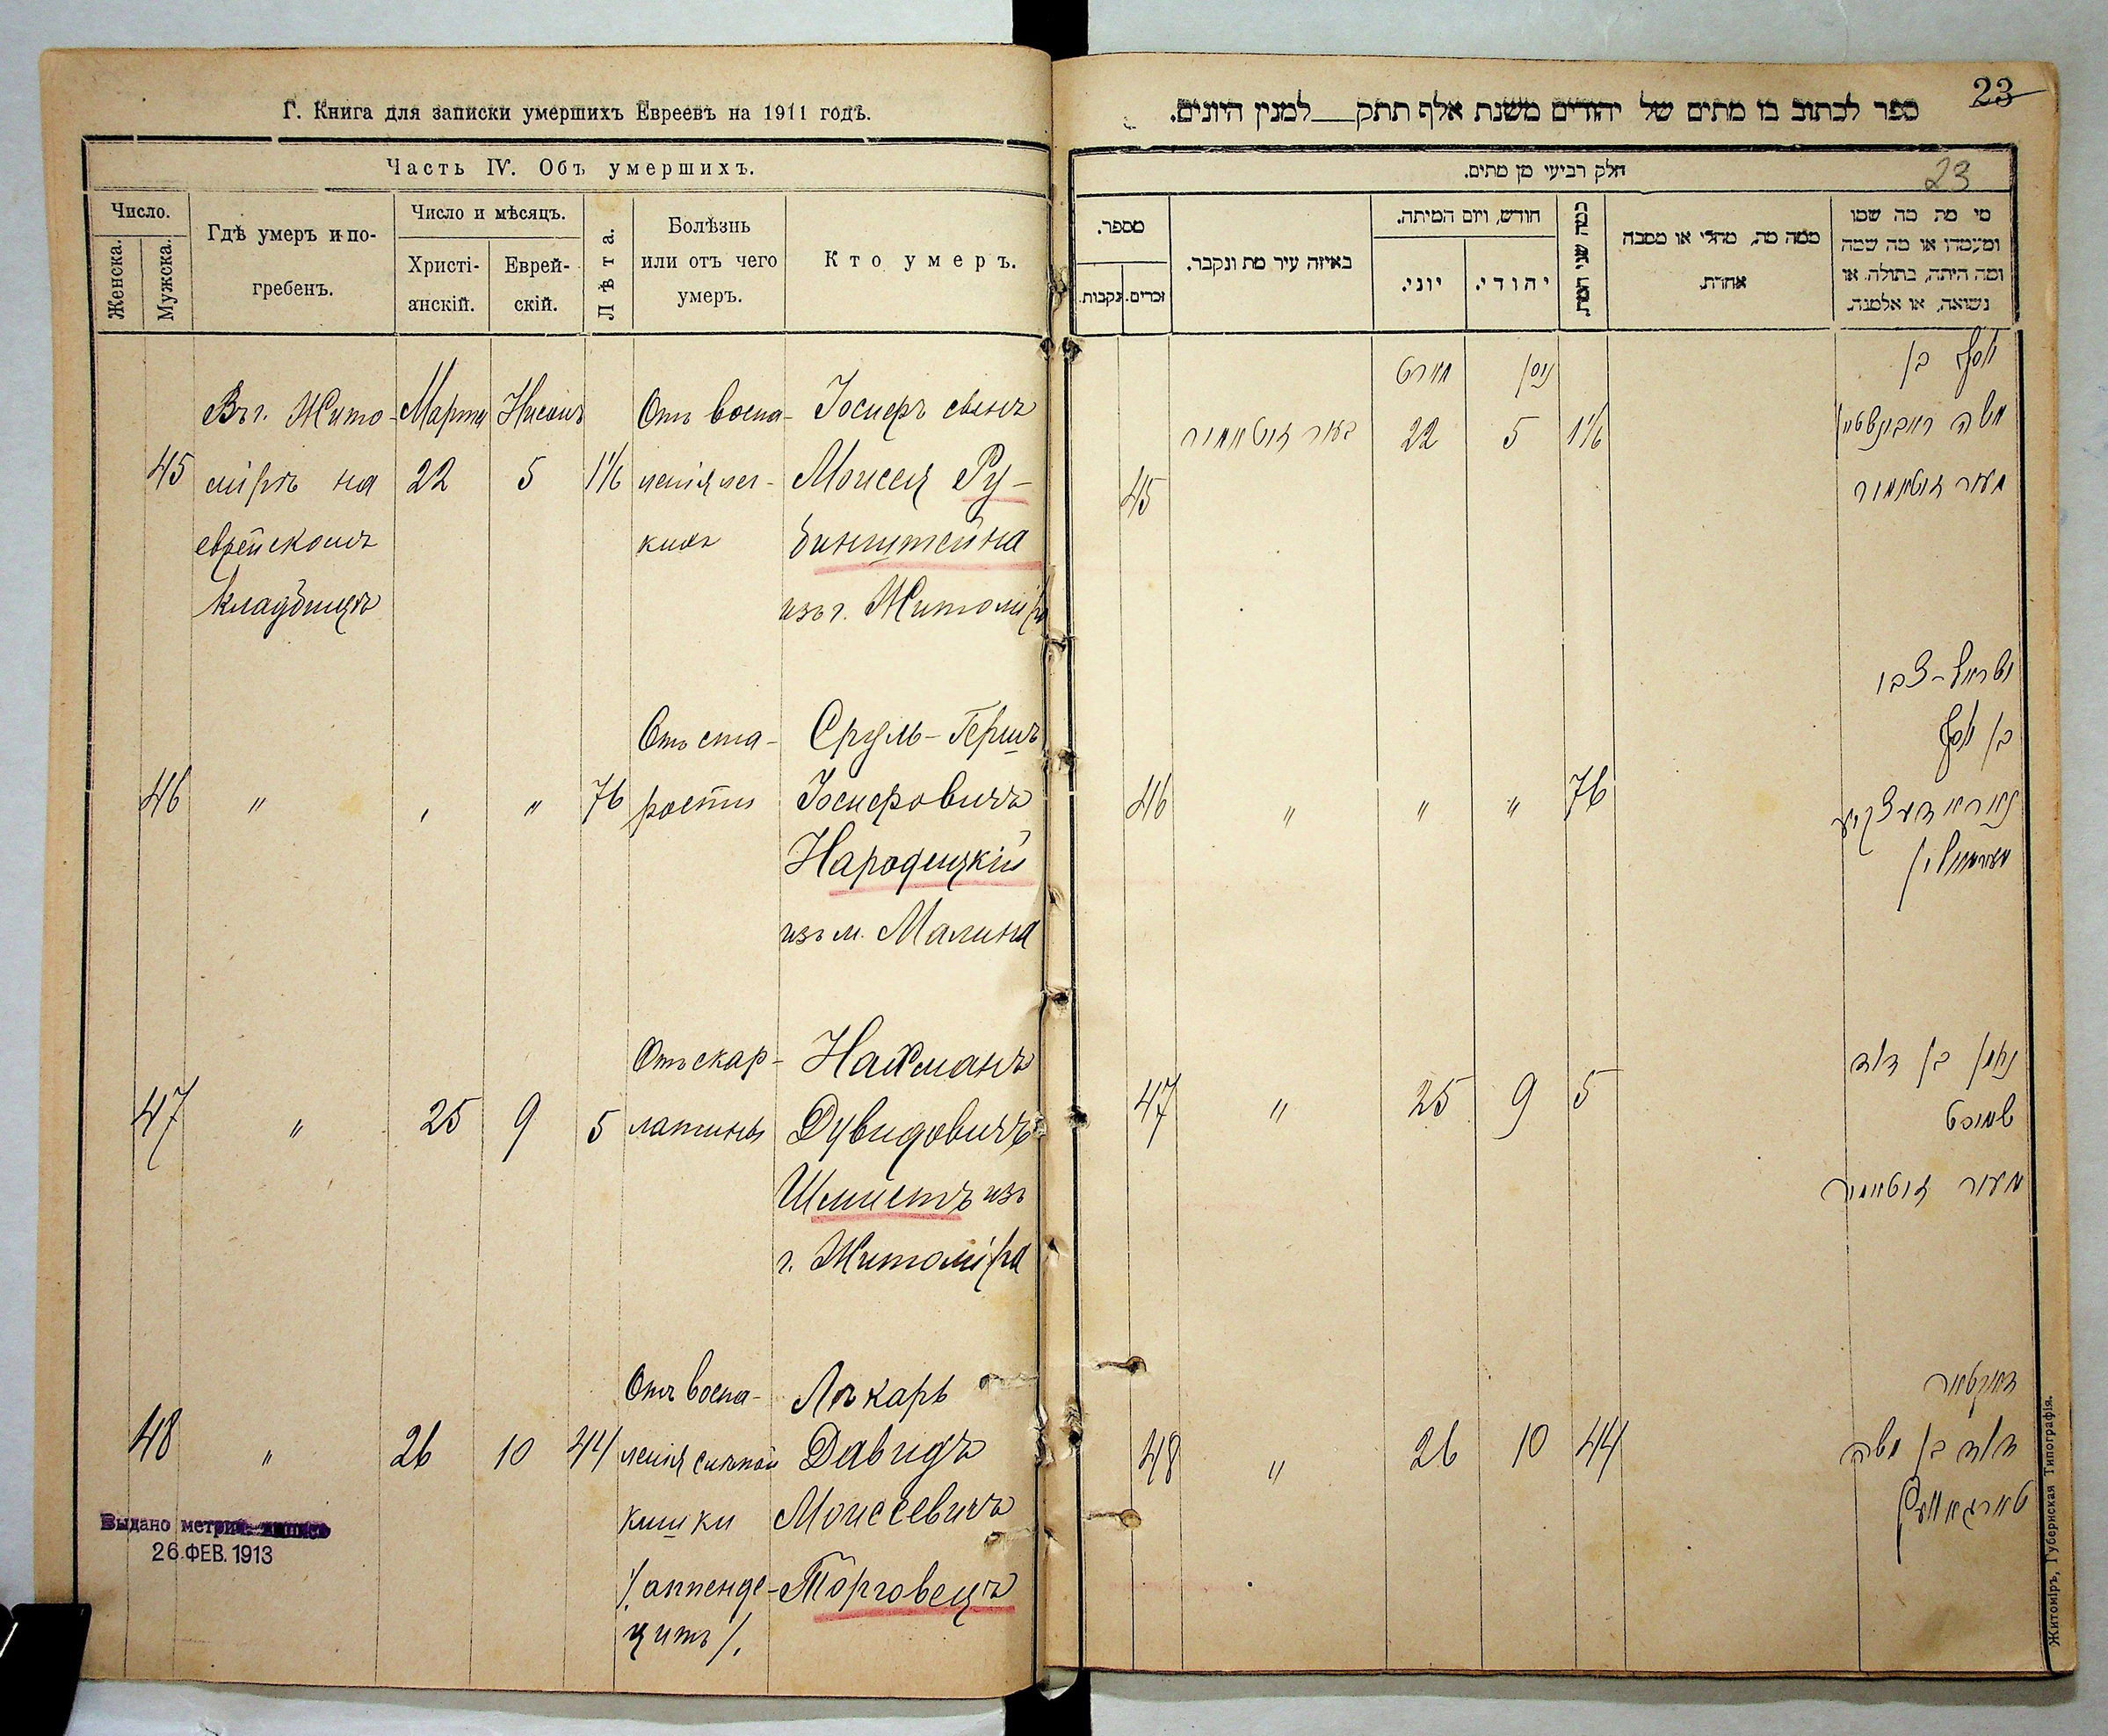 Г. Книга для записки умершихъ Евреевъ на 1911 годъ.
Часть IV. Объ умершихъ.
Число.
Женска.
Мужска.
Гдѣ умеръ и по-
гребенъ.
Число и мѣсяцъ.
Христі-
анскій.
Еврей-
скій.
Лѣта.
Болѣзнь
или отъ чего
умеръ.
Кто умеръ.
45
Въ г. Жито-
мірѣ на
еврейскомъ
кладбищѣ
Марта
22
Нисонъ
5
1 1/6
Отъ воспа-
ленія лег-
кихъ
Іосифъ сынъ
Моисея Ру-
бинштейна
изъ г. Житоміра
46
"
"
"
76
Отъ ста-
рости
Сруль-Гершъ
Іосифовичъ
Народицкій
изъ м. Малина
47
"
25
9
5
Отъ скар-
латины
Нахманъ
Дувидовичъ
Шмистъ изъ
г. Житоміра
48
"
26
10
44
Отъ воспа-
ленія слѣпой
кишки
/аппенде-
цитъ/.
Лѣкарь
Давидъ
Моисеевичъ
Торговецъ
Выдано метрич.
26.ФЕВ.1913
23
ספר לכתוב בו מתים של יהודים משנת אלף תתק למנין היונים.
חלק רביעי מן מתים.
23
מספר.
נקבות.
זכרים.
באיזה עיר מת ונקבר.
חודש, ויום המיתה.
יוני.
יהודי.
כמה שני המת.
ממה מת, מחלי או מסבה
אחרת.
מי מת מה שמו
ומעמדו או מה שמה
ומה היתה, בתולה. או
נשואה, או אלמנה.
45
בעיר זיטאמיר
מארט
22
ניסן
5
1 1/6
יוסף בן
משה ראבינשטיין
מעיר זיטאמיר
46
"
"
"
76
ישראל-צבי
בן יוסף
47
"
25
9
5
נחמן בן דוד
מעיר זיטאמיר
48
"
26
10
44
דאקטאר
דוד בן משה
טארגאוועץ
Житоміръ, Губернская Типографія.